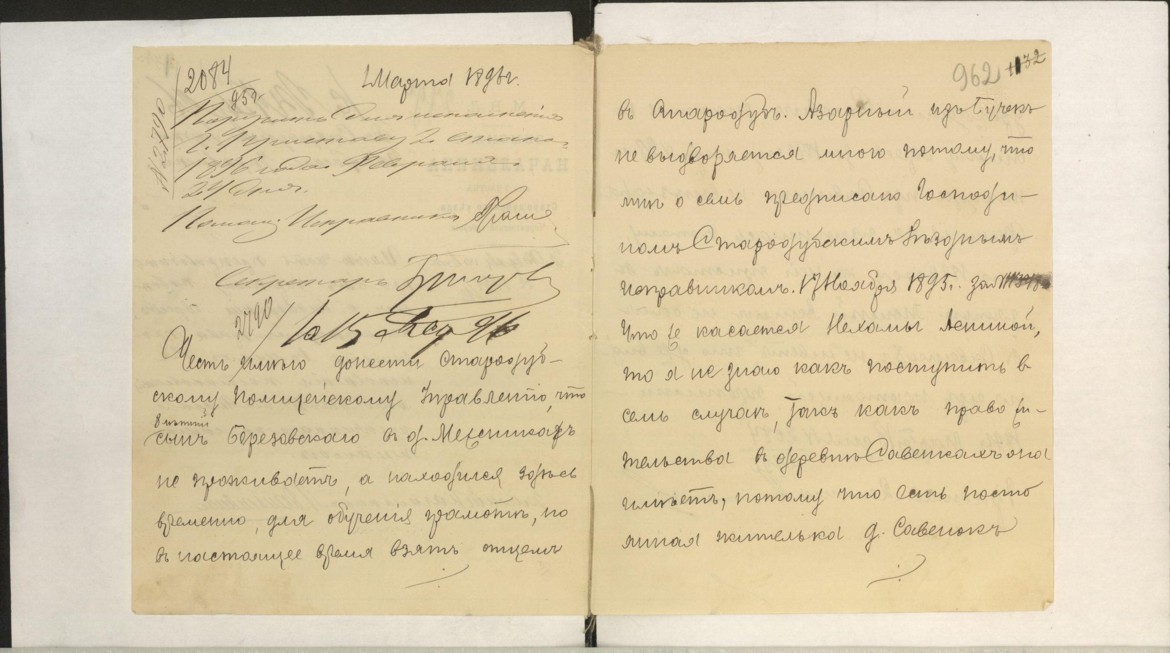 2084
95 г.
1 Марта 1896 г.
г. Приставу 2 стана
1896 года Февраля
24 дня.
Помощ. Исправника
Секретарь
2790
Честь имею донести Стародуб-
скому Полицейскому Управленію, что
сынъ Березовскаго в д. Мехничахъ
не проживаетъ, а находился здѣсь
временно, для обученія грамотѣ, но
в настоящее время взятъ отцемъ
962
132
въ Стародубъ. Азарный изъ Бучекъ
не выдворяется мною потому, что
мнѣ о семъ предписано Господи-
номъ Стародубскимъ Уѣзднымъ
исправникомъ. 17 Ноября 1895 г. за №
Что же касается Нехамы Лениной,
то я не знаю какъ поступить в
семъ случаѣ, такъ какъ право жи-
тельства в деревнѣ Савенкахъ она
имѣетъ, потому что есть посто
янная жителька д. Савенокъ